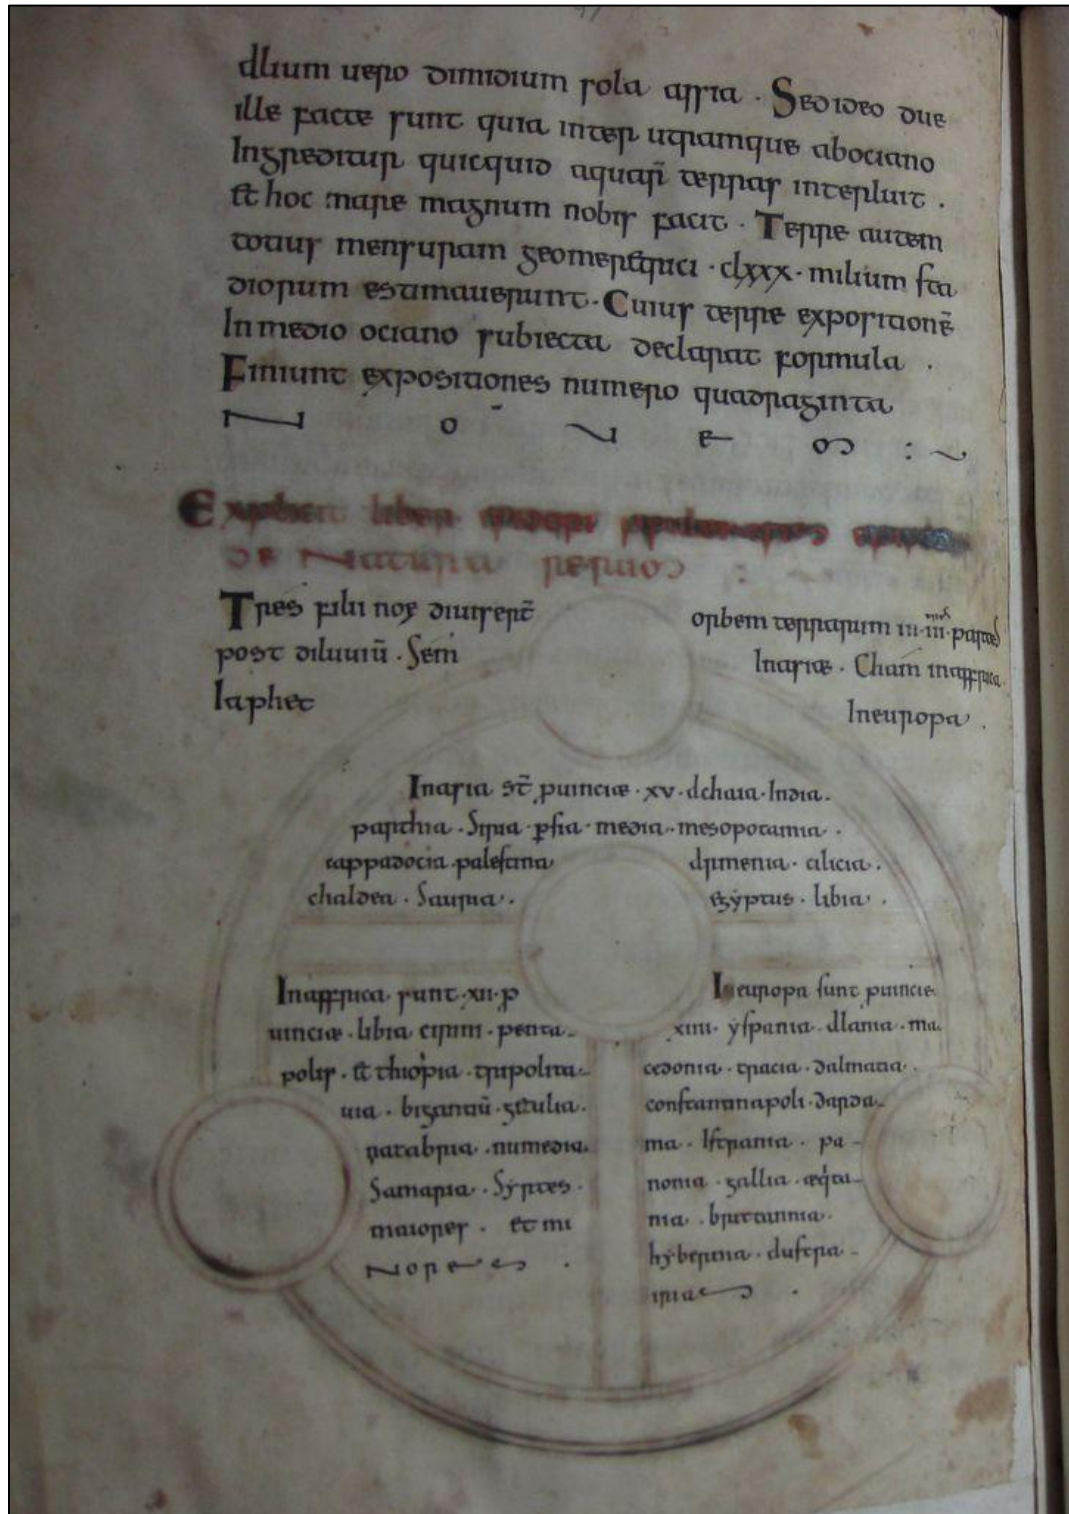 alium uero dimidium sola assia . Sed ideo due
ille facte sunt quia inter utramque abociano
Ingreditur quicquid aquarū terras interluit .
Et hoc mare magnum nobis facit . Terre autem
totius mensuram geometrici · clxxx · milium sta
diorum estimauerunt · Cuius terre expositionē
In medio ociano subiecta declarat formula .
Finiunt expositiones numero quadraginta
N o u e s : ~
Explicit liber
de Natura rerum :
Tres filii noę diuiserūt orbem terrarum in · iii · partes
post diluuiū . Sem In asiæ . Cham in affrica .
Iaphet In europa .
In asia st̄ puinciæ · xv · achaia · India ·
parthia · Siria · ꝑsia · media · mesopotamia ·
cappadocia · palestina armenia · cilicia ·
chaldea · Sauria · egyptus · libia ·
In affrica sunt · xii · p
uinciæ · libia cirini · penta
polis · Ethiopia · tripolita
nia · bizantiū · getulia ·
natabria · numedia ·
Samaria · Syrtes ·
maiores · et mi
Nores ·
In europa sunt puincie
xiiii · yspania · alania · ma
cedonia · tracia · dalmatia ·
constantinapoli · darda
nia · Istrania · pa
nonia · gallia · æqita
nia · brittannia ·
hybernia · austra
ria ·